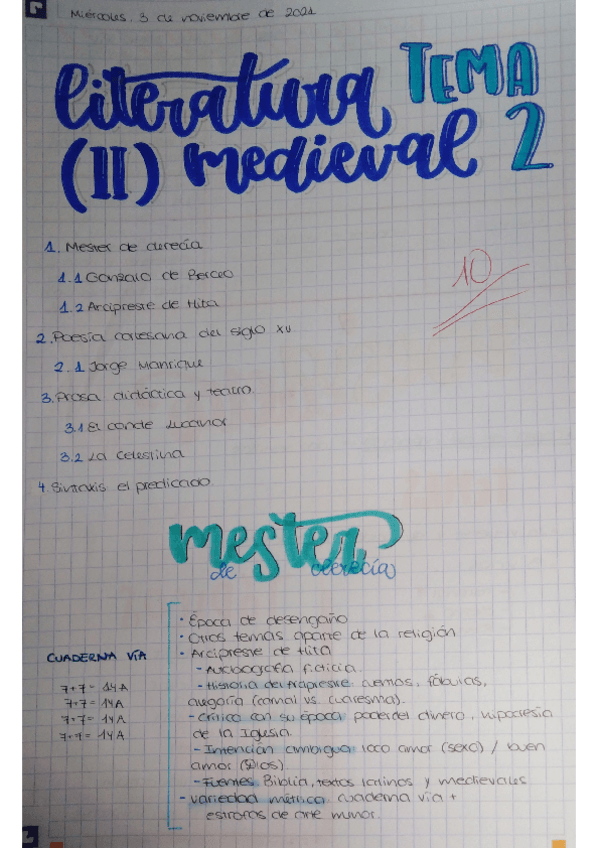 Miércoles, 3 de noviembre de 2021
literatura TEMA
(II) medieval 2
1. Mester de clerecía
1.1 Gonzalo de Berceo
1.2 Arcipreste de Hita
2. Poesía cortesana del siglo XV
2.1 Jorge Manrique
3. Prosa didáctica y teatro
3.1 El conde Lucanor
3.2 La Celestina
4. Sintaxis el predicado
10
mester
de clerecía
CUADERNA VÍA
7+7= 14A
7+7= 14A
7+7= 14A
7+7= 14A
· Época de desengaño
· Otros temas aparte de la religión
· Arcipreste de Hita
- Autobiografía ficticia.
- Historia del Arcipreste: fábulas,
alegoría (carnal vs. cuaresma).
- Crítico con su época: poder del dinero, hipocresía
de la Iglesia.
- Intención ambigua: loco amor (sexo) / buen
amor
- Fuentes: Biblia, textos latinos y medievales
- Variedad métrica: cuaderna vía +
estrofas de arte menor.